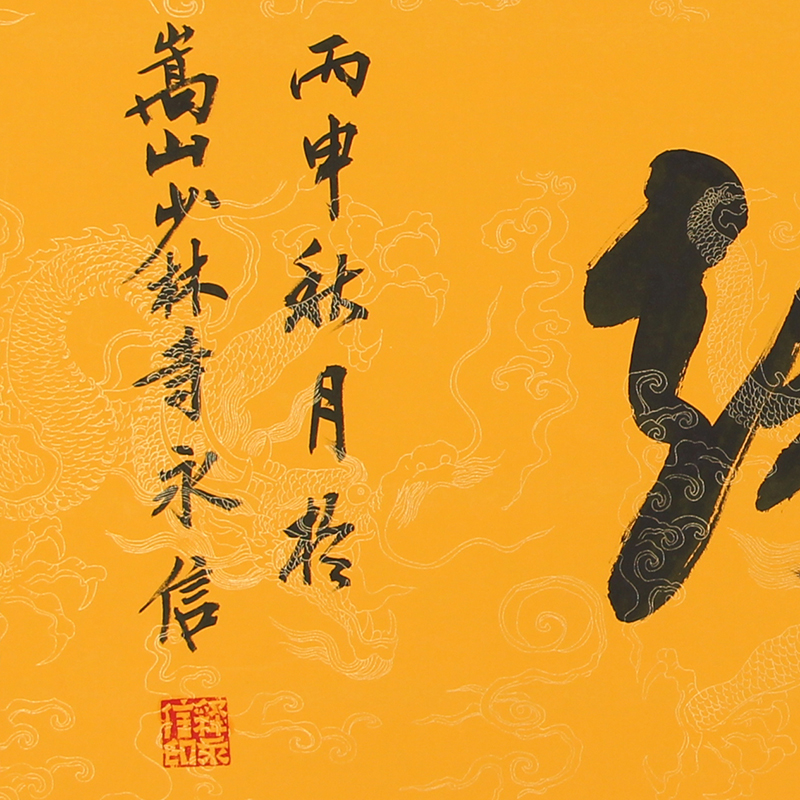 丙申秋月於
嵩山少林寺永信
释永信印